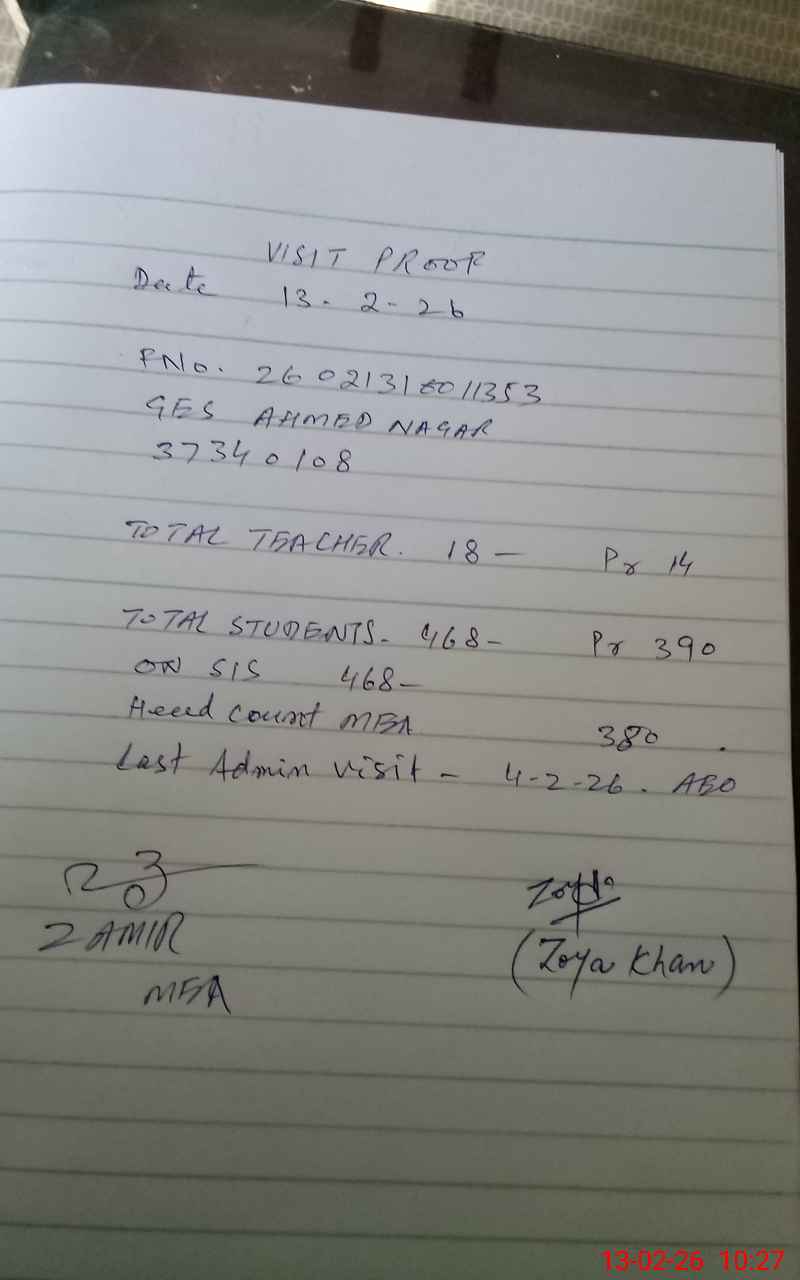 VISIT PROOF
Date 13-2-26
PNo. 2602131601353
GES AHMED NAGAR
37340108
TOTAL TEACHER. 18 - Pr 14
TOTAL STUDENTS- 468- Pr 390
ON SIS 468-
Head count MEA 380.
Last Admin visit - 4-2-26. AEO
ZAMIR
MEA
Zoya
(Zoya Khan)
13-02-26 10:27